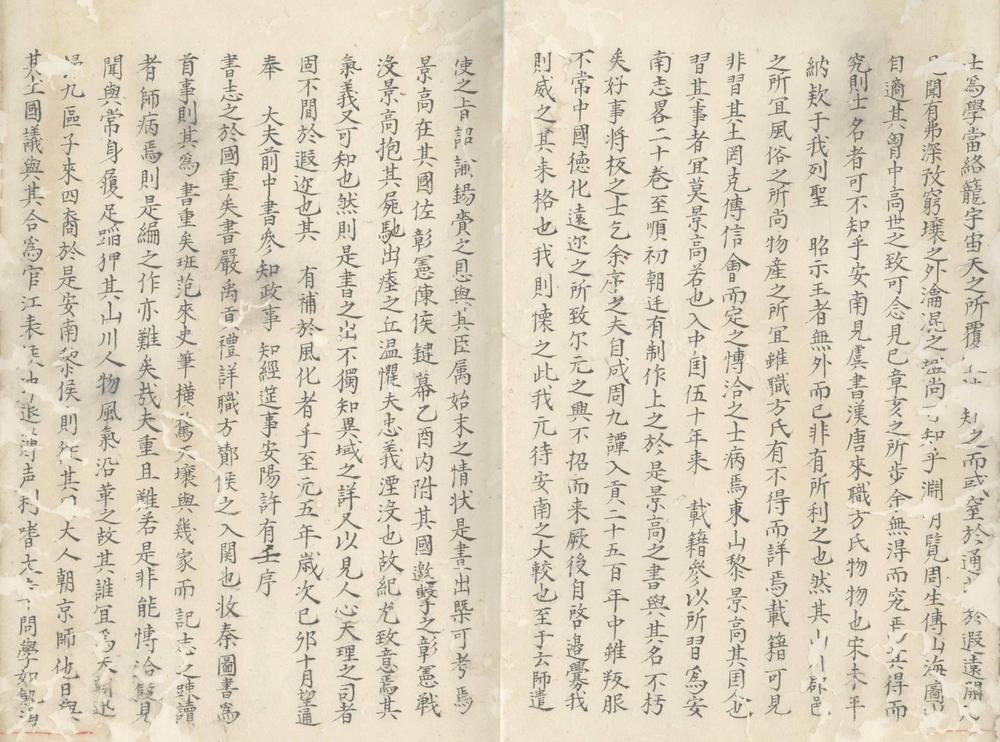 士為學當絡籠宇宙天之所覆知之而或窒於通於遐遠
聞有弗深攷窮壤之外淪混之知乎淵明覽周生傳山海圖
自適其胷中高世之致可念見已章亥之所步余無得而究焉其得而
究則士名者可不知乎安南見虞書漢唐來職方氏物物也宋未平
納欵于我列聖 昭示王者無外而已非有所利之也然其山川郡邑
之所冝風俗之所尚物產之所冝雖職方氏有不得而詳焉載籍可見
非習其土罔克傳信會而定之愽洽之士病焉東山黎景高其囯
習其事者宜莫景高若也入中囯伍十年来 載籍參以所習為安
南志畧二十卷至順初朝廷有制作上之於是景高之書與其名不朽
矣好事将板之士乞余序之夫自成周九譯入貢二十五百年中雖叛服
不常中國徳化遠迩之所致尔元之興不招而来厥後自啓邉釁我
則威之其来格也我則懐之此我元待安南之大較也至于云師遣
使之㫖詔諭錫賚之恩與其臣属始末之情状是書出槩可考焉
景高在其國佐彰憲陳侯鍵幕乙酉内附其國邀擊之彰憲戰
没景高抱其屍馳出瘞之丘温懼夫忠義湮沒也故紀尤致意焉其
氣義又可知也然則是書之出不獨知異域之詳又以見人心天理之司者
固不間於遐迩也其 有補於風化者乎至元五年嵗次已夘十月望通
奉 大夫前中書參知政事 知經筵事安陽許有壬序
書志之於國重矣書嚴禹貢禮詳職方酇侯之入関也收秦圖書為
首事則其為書重矣班范來史筆横騖天壤與幾家而記志之踈讀
者師病焉則是編之作亦難矣哉夫重且難若是非能愽洽見
聞與常身履足蹈狎其山川人物風氣沿革之故其誰冝為天
九區子來四裔於是安南黎侯則從其大人朝京師他日與
其國議與其合為官江表退薄声利嗜問學如